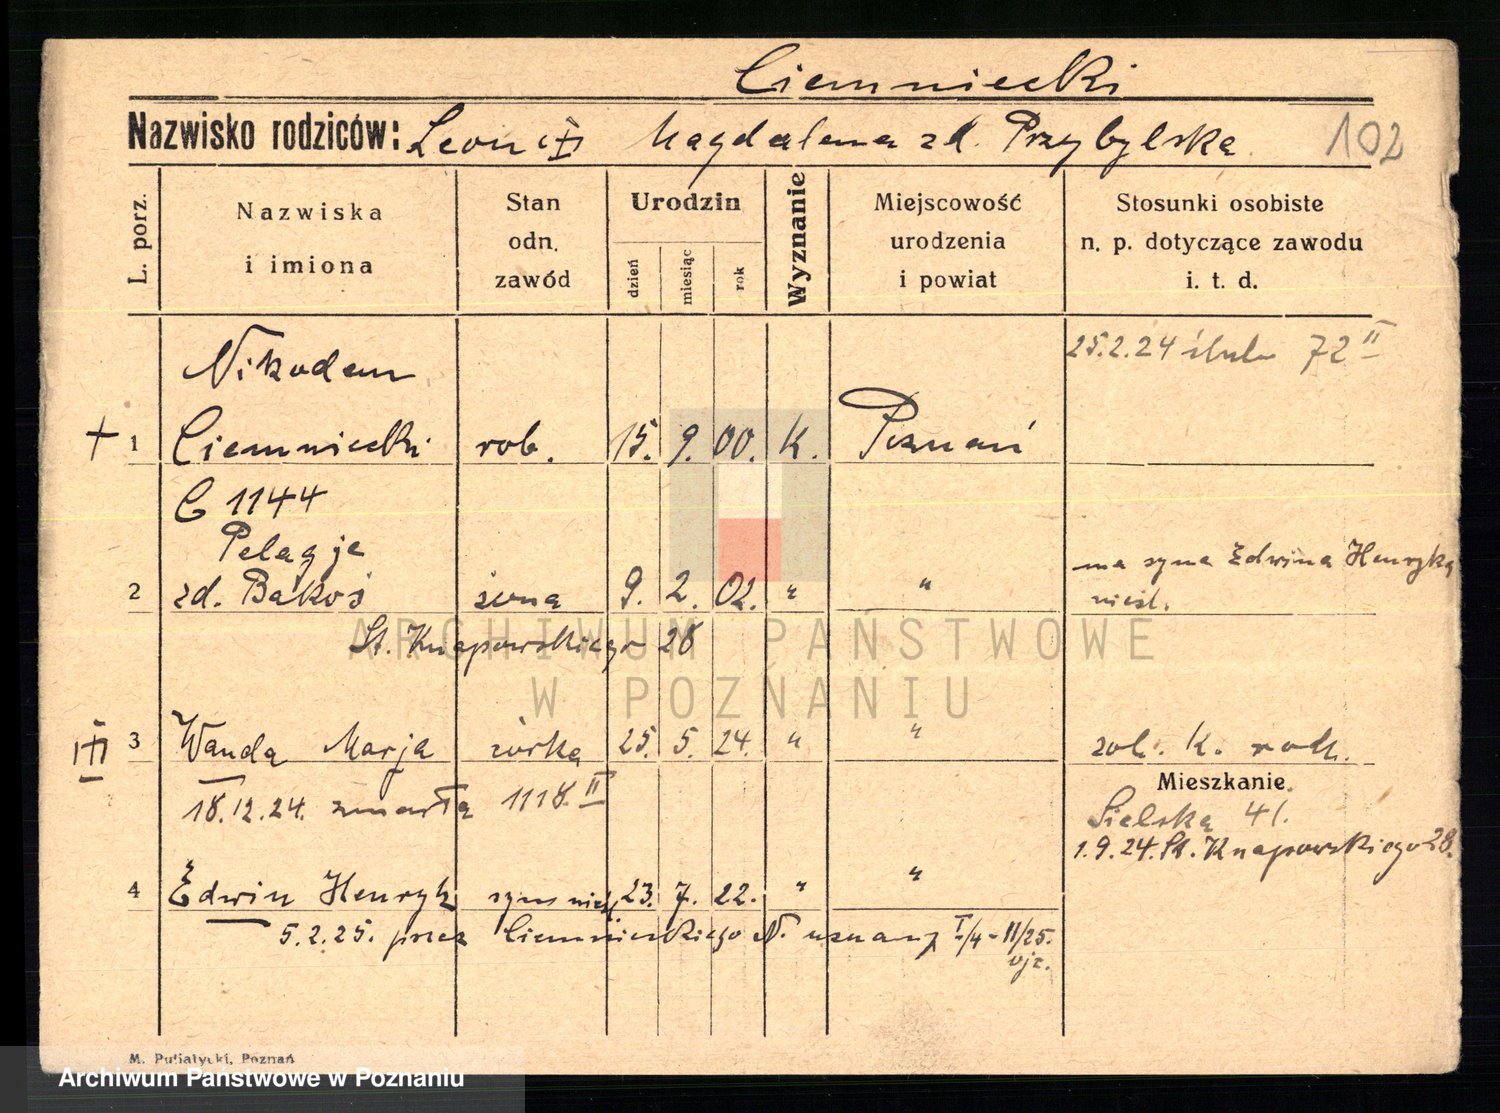 Ciemniecki
Nazwisko rodziców: Leon i Magdalena zd. Przybylska
102
L. porz.
Nazwiska i imiona
Stan odn. zawód
Urodzin
dzień
miesiąc
rok
Wyznanie
Miejscowość urodzenia i powiat
Stosunki osobiste n. p. dotyczące zawodu i. t. d.
25.2.24 ślub 72 II
Nikodem
+ 1 Ciemniecki rob. 15. 9. 00. K. Poznań
C 1144
Pelagja
2 zd. Bakoś żona 9. 2. 02. " "
ma syna Edwina Henryka
nieśl.
St. Knapowskiego 28
ARCHIWUM PAŃSTWOWE
W POZNANIU
3 Wanda Marja córka 25. 5. 24. " "
K. rodz.
18.12.24. zmarła 1118. II
Mieszkanie.
Sielska 41.
1.9.24. St. Knapowskiego 28.
4 Edwin Henryk syn nieśl. 23. 7. 22. " "
5.2.25. przez Ciemnieckiego N. uznany I/4 - 11/25.
ojc.
M. Putiatycki, Poznań
Archiwum Państwowe w Poznaniu